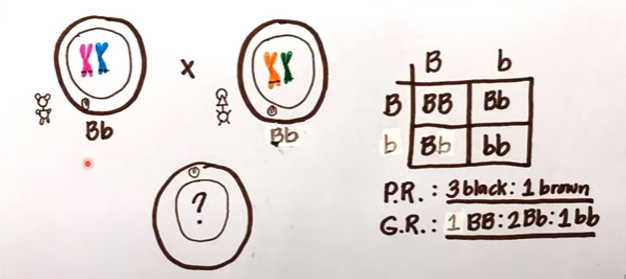 x
Bb
Bb
?
B b
B BB Bb
b Bb bb
P.R. : 3 black : 1 brown
G.R. : 1 BB : 2 Bb : 1 bb